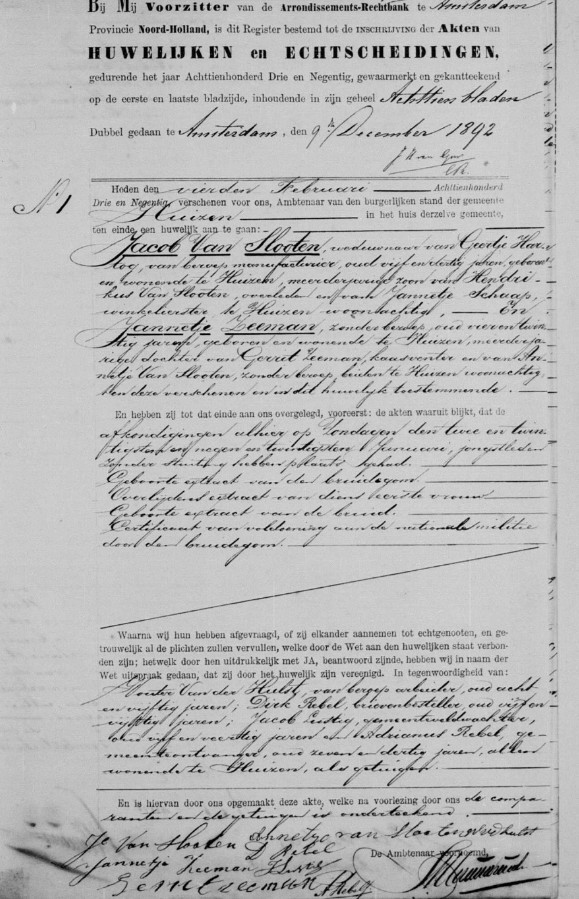 Bij Mij Voorzitter van de Arrondissements-Rechtbank te Amsterdam
Provincie Noord-Holland, is dit Register bestemd tot de INSCHRIJVING der Akten van
HUWELIJKEN en ECHTSCHEIDINGEN,
gedurende het jaar Achttienhonderd Drie en Negentig, gewaarmerkt en gekantteekend
op de eerste en laatste bladzijde, inhoudende in zijn geheel Achttien bladen
Dubbel gedaan te Amsterdam, den 9n December 1892
No 1
Heden den vierden Februari Achttienhonderd
Drie en Negentig, verschenen voor ons, Ambtenaar van den burgerlijken stand der gemeente
Huizen in het huis derzelve gemeente,
ten einde een huwelijk aan te gaan:
Jacob Van Slooten, weduwnaar van Geertje Har-
tog, van beroep manufacturier, oud vijf en dertig jaren, geboren
en wonende te Huizen, meerderjarige zoon van Hendri-
kus Van Slooten, overleden en van Jannetje Schaap,
winkelierster, te Huizen woonachtig, En
Jannetje Zeeman, zonder beroep, oud vier en twin-
tig jaren, geboren en wonende te Huizen, meerderja-
rige dochter van Gerrit Zeeman, kausventer en van An-
netje Van Slooten, zonder beroep, beiden te Huizen woonachtig
en deze verschenen en in dit huwelijk toestemmende.
En hebben zij tot dat einde aan ons overgelegd, vooreerst: de akten waaruit blijkt, dat de
afkondigingen alhier op Zondagen den twee en twin-
tigsten en negen en twintigsten Januari, jongstleden
zonder stuiting hebben plaats gehad.
Geboorte extract van den bruidegom.
Overlijdens extract van diens eerste vrouw
Geboorte extract van de bruid.
Certificaat van voldoening aan de nationale militie
door den bruidegom.
Waarna wij hun hebben afgevraagd, of zij elkander aannemen tot echtgenooten, en ge-
trouwelijk al de plichten zullen vervullen, welke door de Wet aan den huwelijken staat verbon-
den zijn; hetwelk door hen uitdrukkelijk met JA, beantwoord zijnde, hebben wij in naam der
Wet uitspraak gedaan, dat zij door het huwelijk zijn vereenigd. In tegenwoordigheid van:
Wouter Van der Hulst, van beroep arbeider, oud acht
en vijftig jaren; Dirk Rebel, brievenbesteller, oud vijf en
vijftig jaren; Jacob Lustig, gemeenteveldwachter,
oud vijf en veertig jaren en Adrianus Rebel, ge-
meenteontvanger, oud zeven en dertig jaren, allen
wonende te Huizen, als getuigen.
En is hiervan door ons opgemaakt deze akte, welke na voorlezing door ons de compa-
ranten en de getuigen is onderteekend.
Jb Van Slooten Annetje van Slooten
Jannetje Zeeman D Rebel
De Ambtenaar voornoemd,
Gerrit Zeeman A Rebel